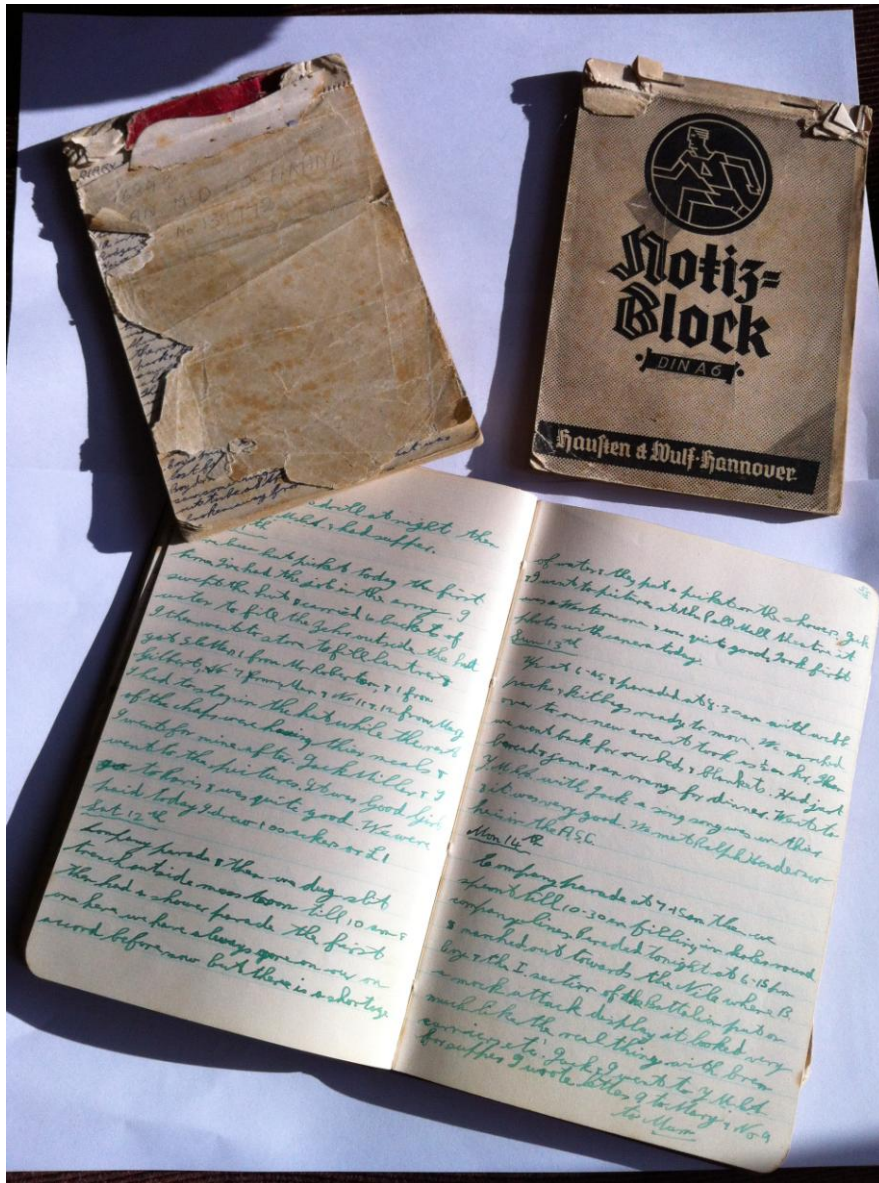 DIARY
Notiz=
Block
DIN A6
Hausten & Wulf-Hannover
drill at night then
& had supper.
hut picket today the first
time I've had the job in the army. I
swept the hut & carried buckets of
water to fill the outside the hut
I then went to store to fill lanterns
got 5 letters 1 from Mr Robertson, & 1 from
Gilbert, No 7 from Mam & No 11 & 12 from Mary
I had to stay in the hut while the rest
of the chaps were having their meals &
I went for mine after. Jack Miller & I
went to the pictures. It was Good Girls
go to Paris, & was quite good. We were
paid today I drew 100 ackers or £1
Sat 12th
Company parade & then we dug slit
trench outside mess room till 10 am &
then had a shower parade the first
one here we have always gone on our own
accord before now but there is a shortage
of water & they put a picket on the shower. Jack
& I went to pictures at the Pall Mall theatre it
was a Western one & was quite good, Took first
photo with camera today.
Sun 13th
Up at 6-45 & paraded at 8-30 am with web
packs & kitbags ready to move. We marched
over to our new area it took us 1/2 an hr. Then
went back for our beds & blankets. Had just
bread & jam & an orange for dinner. Went to
Y.M.C.A with Jack a sing song was on there
& it was very good. We met Ralph Henderson
he's in the A.S.C.
Mon 14th
Company parade at 7-15am then we
spent till 10-30 am filling in holes round
company lines. Paraded tonight at 6-15pm
& marched out towards the Nile where B
Coy & the I section of the battalion put on
a mock attack display it looked very
much like the real thing with bren
carriers etc. Jack & I went to Y.M.C.A.
for supper I wrote letters 9 to Mary & No 9
to Mam